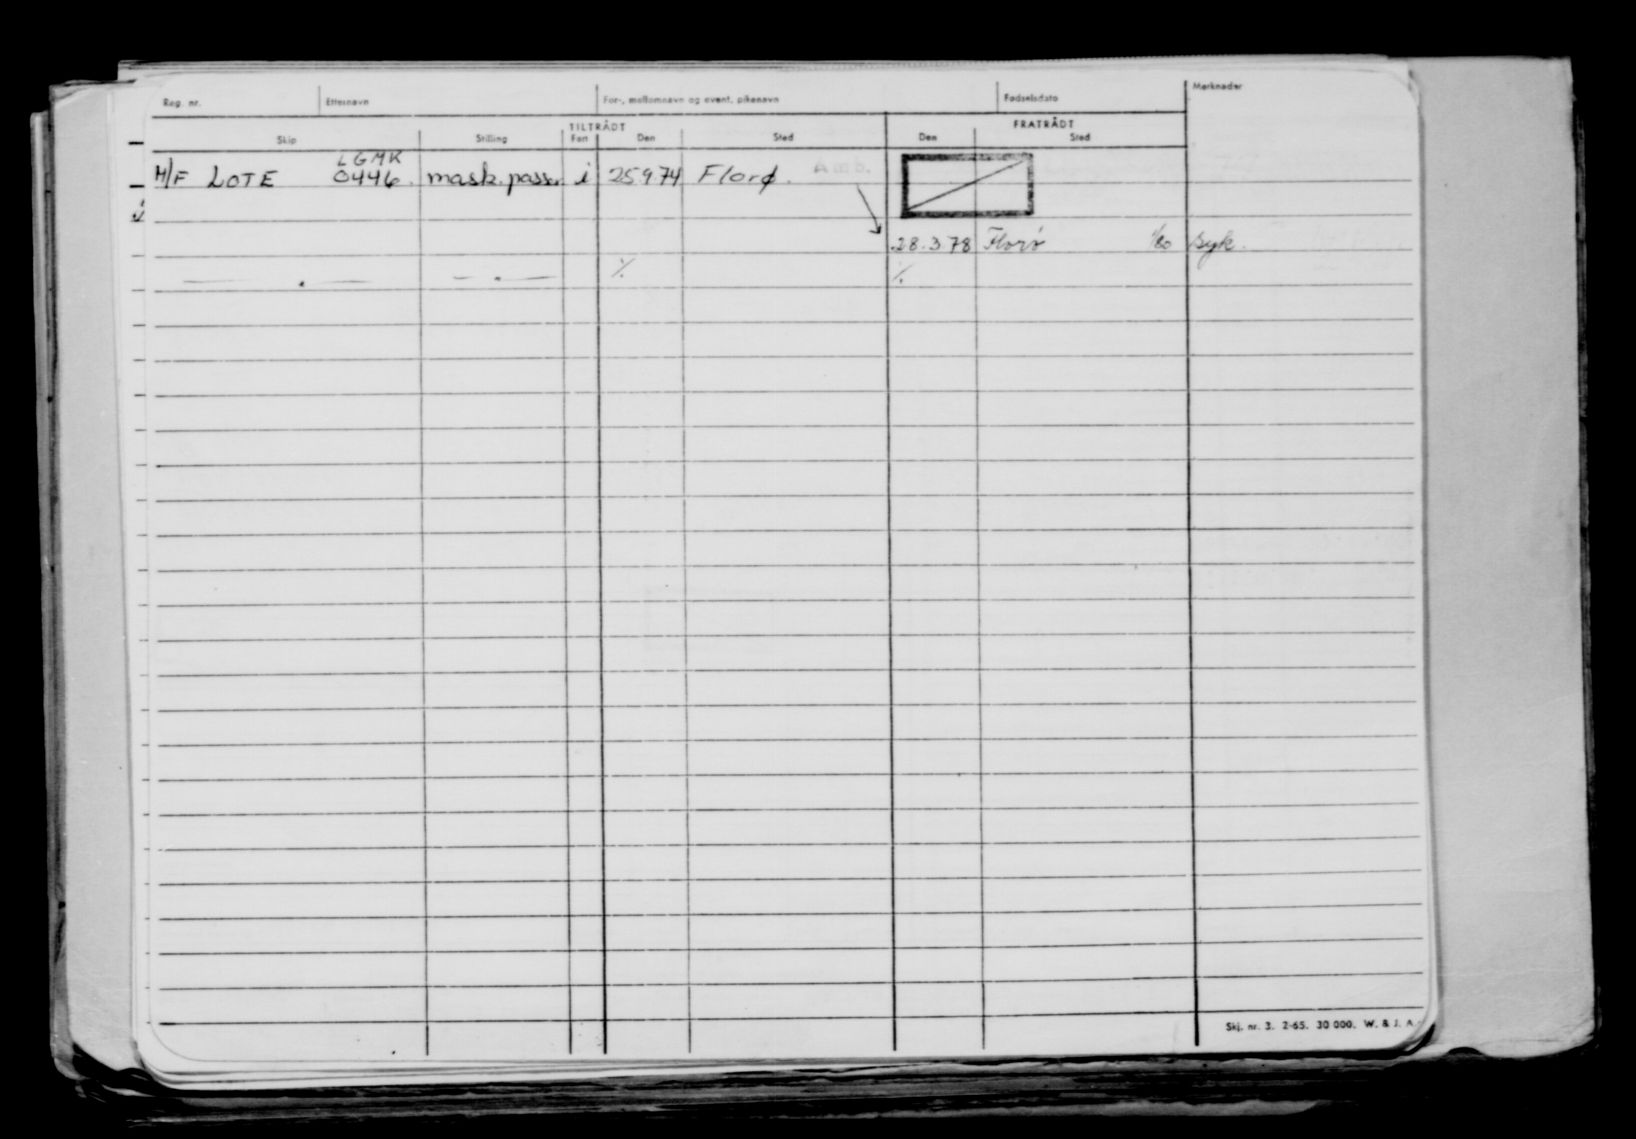 Reg. nr. Etternavn For-, mellomnavn og event. pikenavn Fødselsdato Merknader
TILTRÅDT FRATRÅDT
Skip Stilling Fart Den Sted Den Sted
LGMK
M/F LOTE 0446. mask.passer i 25.9.74 Florø.
28.3.78 Florø 1/80 syk.
Skj. nr. 3. 2-65. 30 000. W. & J. A